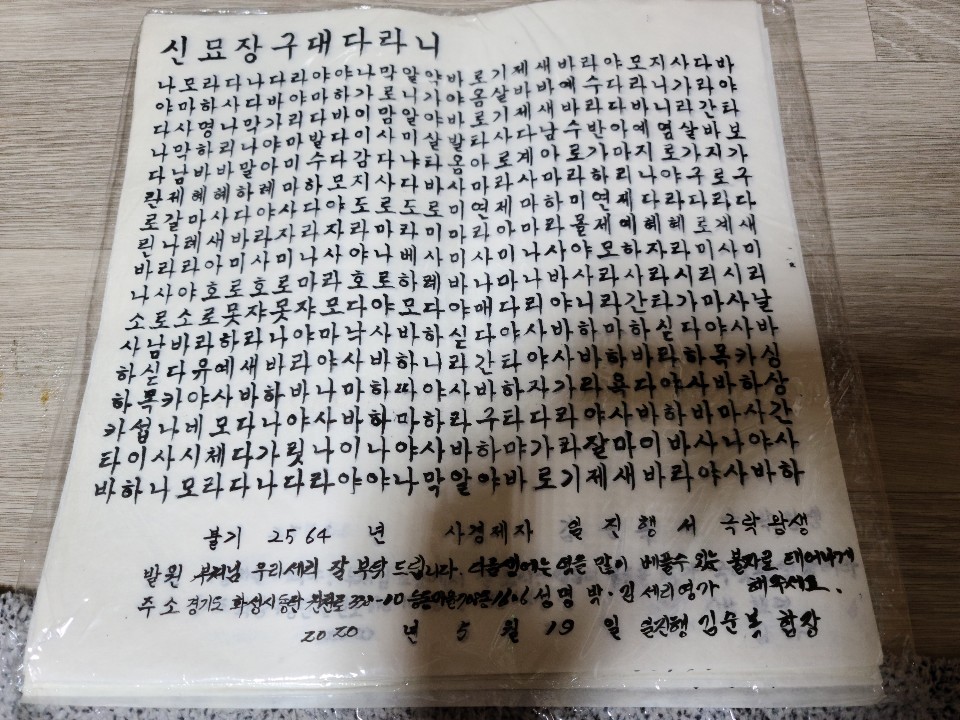 신묘장구대다라니
나모라다나다라야야나막알약바로기제새바라야모지사다바
야마하사다바야마하가로니가야옴살바바예수다라나가라야
다사명나막가리다바이맘알야바로기제새바라다바니라간타
나막하리나야마발다이사미살발타사다남수반아예염살바보
다남바바말아미수다감다냐타옴아로계아로가마지로가지가
란제혜혜하례마하모지사다바사마라사마라하리나야구로구
로갈마사다야사다야도로도로미연제마하미연제다라다라다
린나례새바라자라자라마라미마라아마라몰제예혜혜로계새
바라라아미사미나사야나베사미사미나사야모하자라미사미
나사야호로호로마라호로하례바나마나바사라사라시리시리
소로소로못쟈못쟈모다야모다야매다리야니라간타가마사날
사남바라하라나야마낙사바하싣다야사바하마하싣다야사바
하싣다유예새바라야사바하니라간타야사바하바라하목카싱
하목카야사바하바나마하따야사바하자가라욕다야사바하상
카섭나네모다나야사바하마하라구타다라야사바하바마사간
타이사시체다가릿나이나야사바하먀가라잘마이바사나야사
바하나모라다나다라야야나막알야바로기제새바라야사바하
불기 2564 년 사경제자 일진행서 극락왕생
발원 부처님 우리세리 잘 부탁드립니다. 다음 많이 베풀수 있는 불자로 태어나게
주소 경기도 화성시 동탄 성명 박·김세리영가 해주세요.
2020 년 5 월 19 일 일진행 김순복 합장